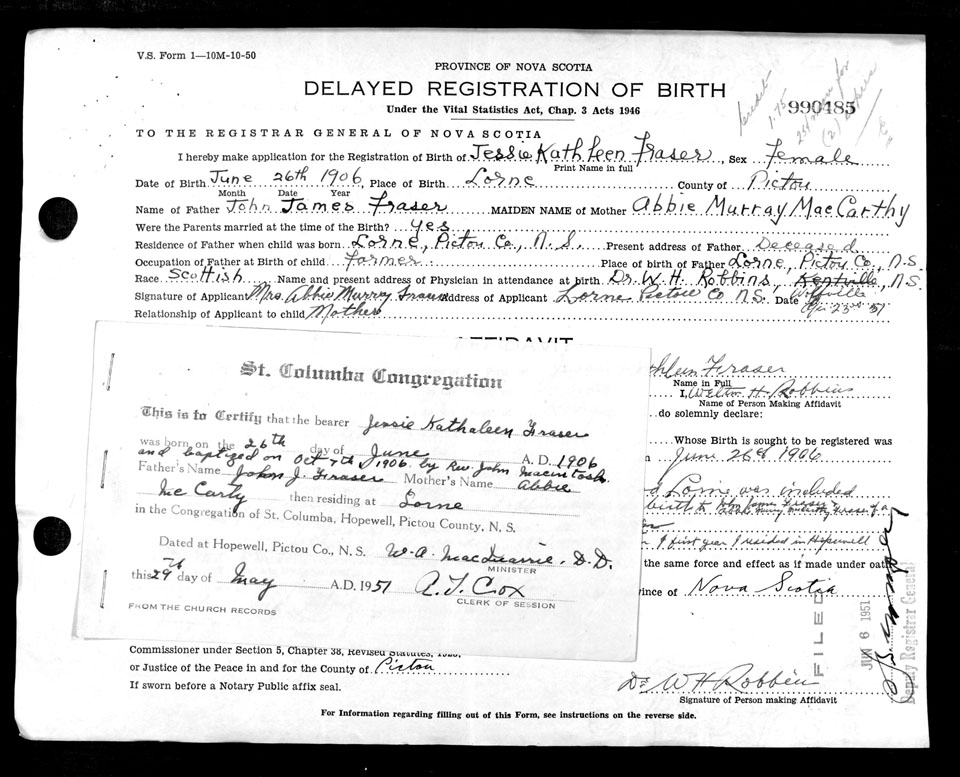 V.S. Form 1—10M-10-50
PROVINCE OF NOVA SCOTIA
DELAYED REGISTRATION OF BIRTH
Under the Vital Statistics Act, Chap. 3 Acts 1946
990485
credit
1.75
(2)
TO THE REGISTRAR GENERAL OF NOVA SCOTIA
I hereby make application for the Registration of Birth of Jessie Kathleen Fraser, Sex Female
Print Name in full
Date of Birth June 26th 1906, Place of Birth Lorne County of Pictou
Month Date Year
Name of Father John James Fraser MAIDEN NAME of Mother Abbie Murray MacCarthy
Were the Parents married at the time of the Birth? Yes
Residence of Father when child was born Lorne, Pictou Co., N.S. Present address of Father Deceased
Occupation of Father at Birth of child Farmer Place of birth of Father Lorne, Pictou Co., N.S.
Race Scottish Name and present address of Physician in attendance at birth Dr. W. H. Robbins, Kentville, N.S.
Wolfville
Signature of Applicant Mrs. Abbie Murry Fraser Address of Applicant Lorne Pictou Co N.S. Date 23rd 51
Relationship of Applicant to child Mother
AFFIDAVIT
St. Columba Congregation
This is to Certify that the bearer Jessie Kathaleen Fraser
was born on the 26th day of June A.D. 1906
and baptized on Oct 7th, 1906 by Rev. John Macintosh.
Father's Name John J. Fraser Mother's Name Abbie
McCarty then residing at Lorne
in the Congregation of St. Columba, Hopewell, Pictou County, N. S.
Dated at Hopewell, Pictou Co., N. S. W. A. MacQuarrie, D.D.
MINISTER
this 29th day of May A.D. 1951 A. T. Cox
CLERK OF SESSION
FROM THE CHURCH RECORDS
thleen Fraser
Name in Full
I, H. Robbins
Name of Person Making Affidavit
do solemnly declare:
Whose Birth is sought to be registered was
June 26 1906
Lorne was included
first year I resided in Hopewell
the same force and effect as if made under oath
ince of Nova Scotia
FILED
JUN 6 1951
Deputy Registrar General
Commissioner under Section 5, Chapter 38, Revised Statutes, 1923,
or Justice of the Peace in and for the County of Pictou
If sworn before a Notary Public affix seal.
Dr W H Robbins
Signature of Person making Affidavit
For Information regarding filling out of this Form, see instructions on the reverse side.